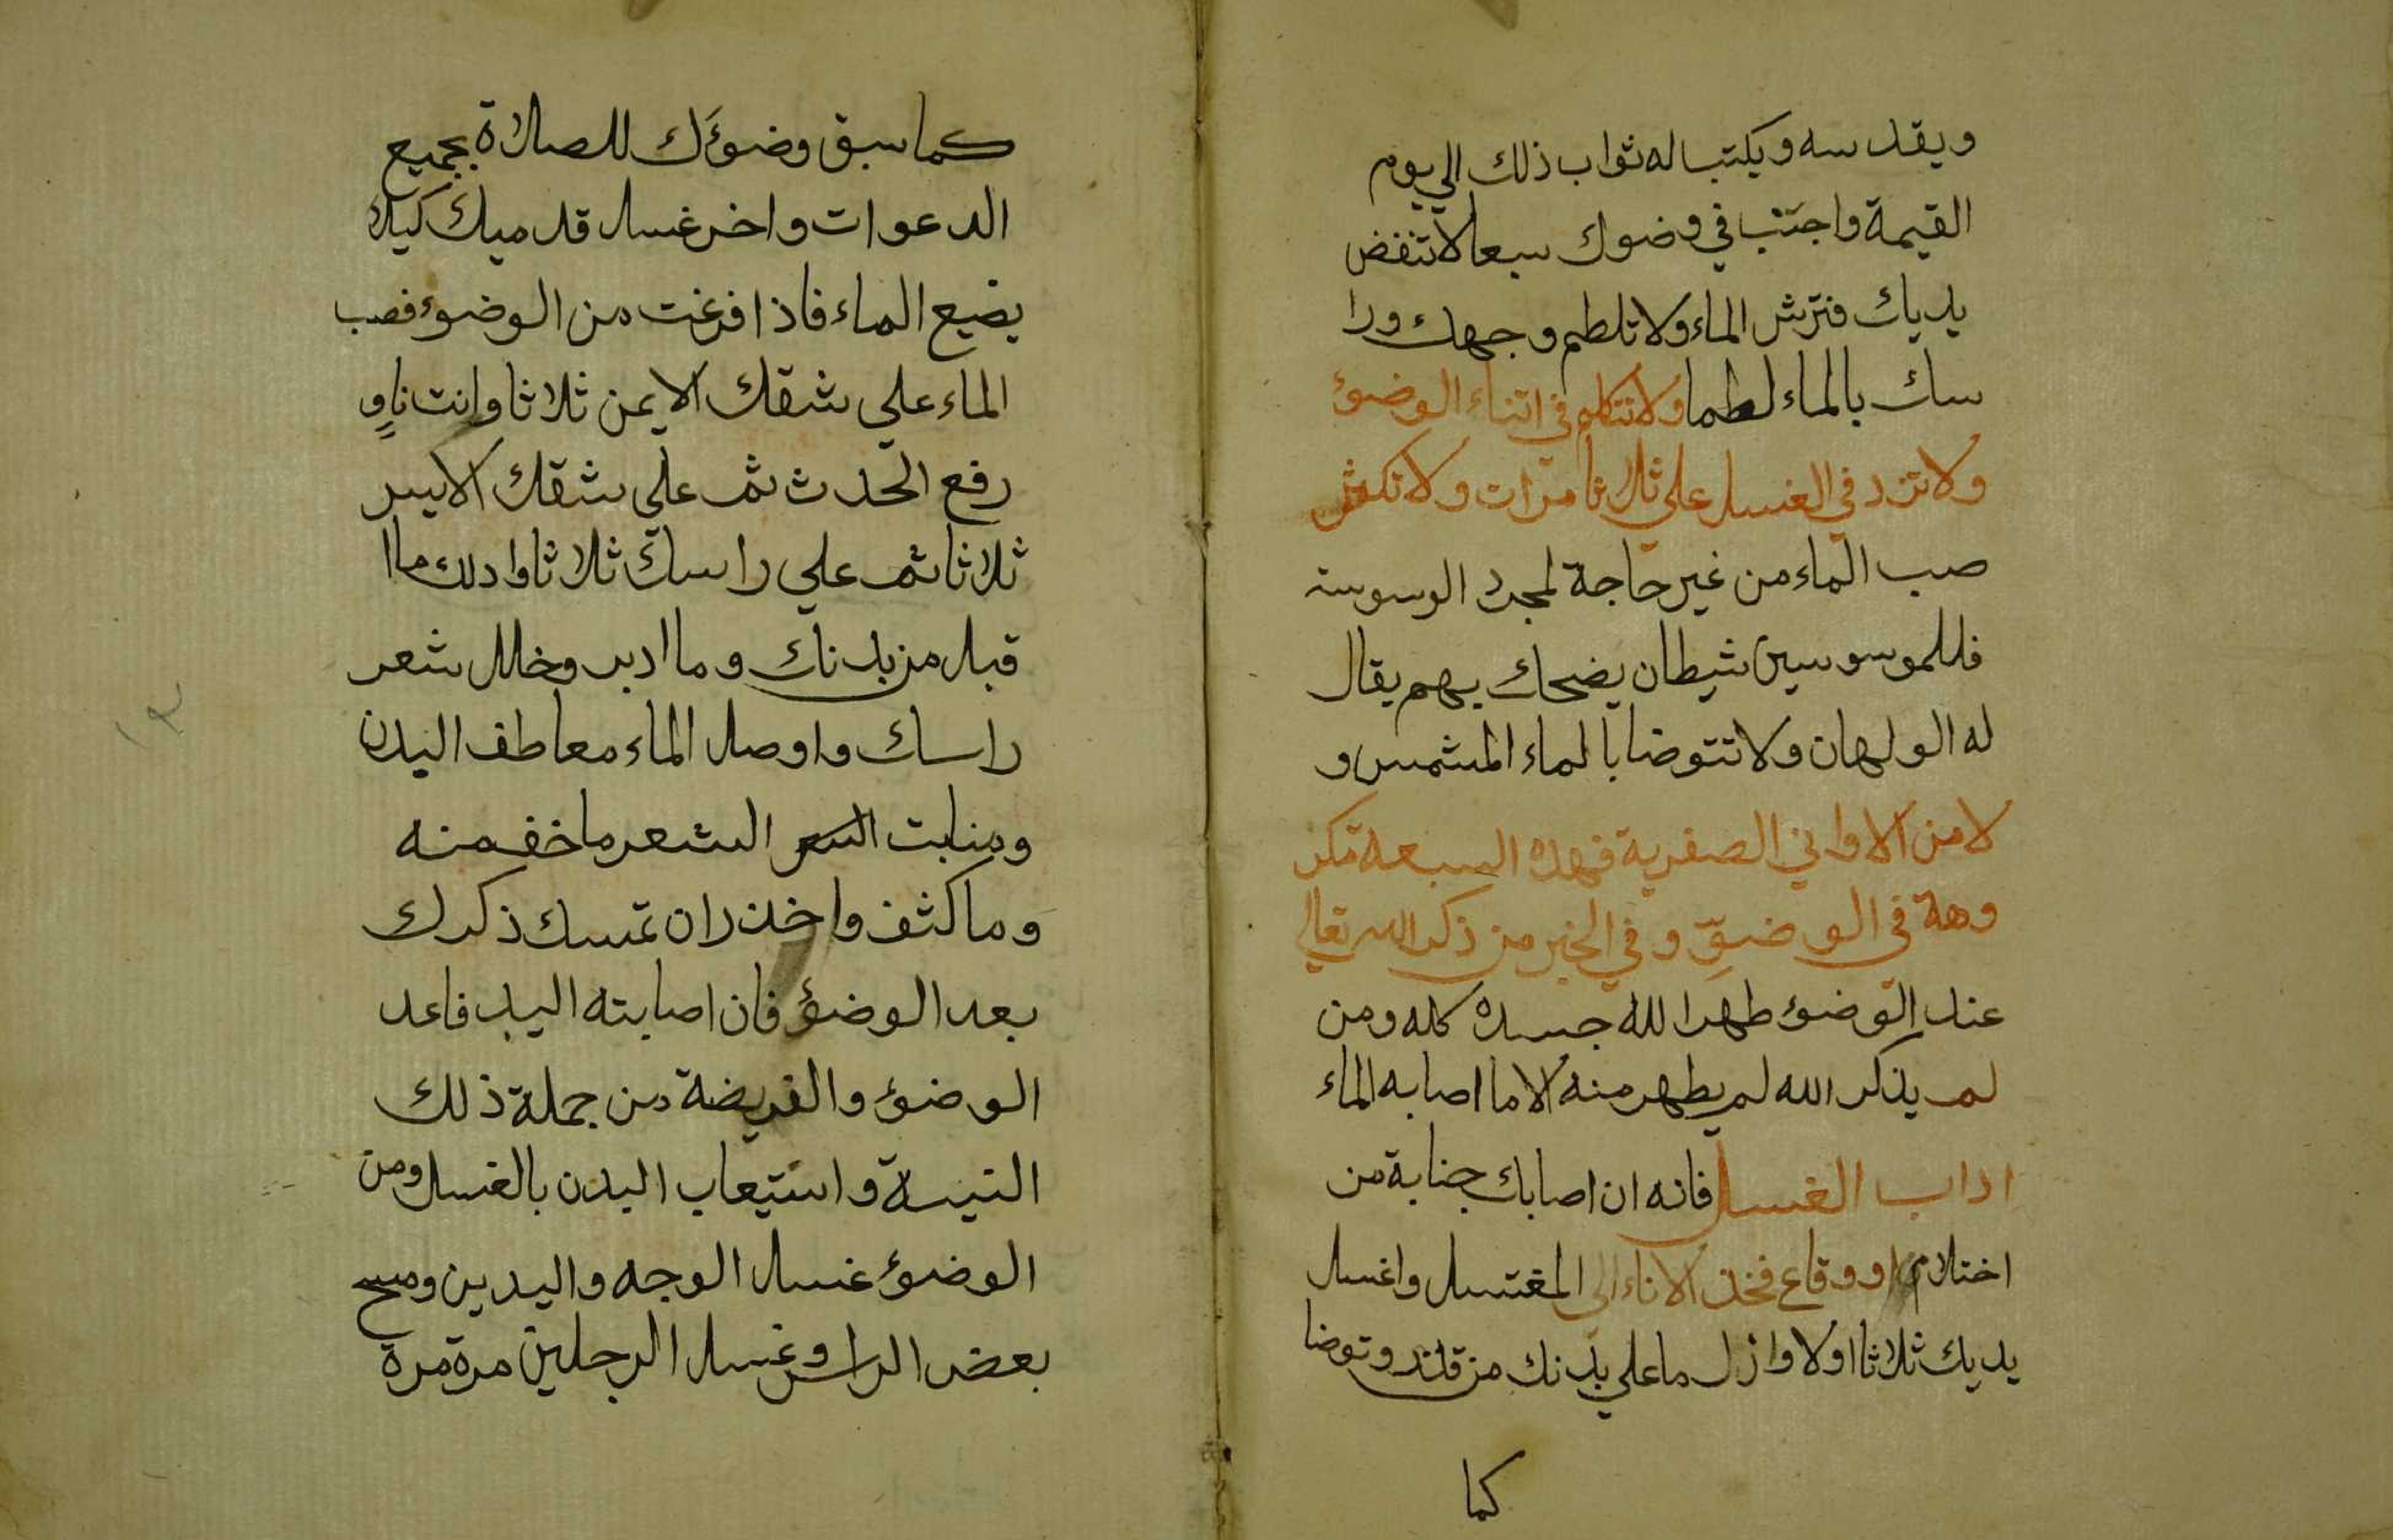 ويقدسه ويكتب له ثواب ذلك الي يوم
القيمة واجتنب في وضوك سبعا لا تنفض
يديك فترش الماء ولا تلطم وجهك ورا
سك بالماء لطما ولا تتكلم في اثناء الوضوء
ولا تزد في الغسل علي ثلاثا مرات ولا تكثر
صب الماء من غير حاجة لمجرد الوسوسة
فللموسوسين شيطان يضحك بهم يقال
له الولهان ولا تتوضا بالماء المشمس و
لا من الاواني الصفرية فهذه السبعة مكر
وهة في الوضوء وفي الخبر من ذكر الله تعالي
عند الوضوء طهر الله جسده كله ومن
لم يذكر الله لم يطهر منه الا ما اصابه الماء
اداب الغسل فانه ان اصابك جنابة من
احتلام او وقاع فخذ الاناء الي المغتسل واغسل
يديك ثلاثا اولا وازل ما علي بدنك من قذر وتوضا
كما
كما سبق وضوءك للصلاة بجميع
الدعوات واخر غسل قدميك كيلا
يضيع الماء فاذا فرغت من الوضوء فصب
الماء علي شقك الايمن ثلاثا وانت ناوٍ
رفع الحدث ثم علي شقك الايسر
ثلاثا ثم علي راسك ثلاثا وادلك ما ا
قبل من بدنك وما ادبر وخلل شعر
راسك واوصل الماء معاطف البدن
ومنابت الشعر ما خف منه
وما كثف واحذر ان تمسك ذكرك
بعد الوضوء فان اصابته اليد فاعد
الوضوء والفريضة من جملة ذلك
النية واستيعاب البدن بالغسل ومن
الوضوء غسل الوجه واليدين ومسح
بعض الراس وغسل الرجلين مرة مرة